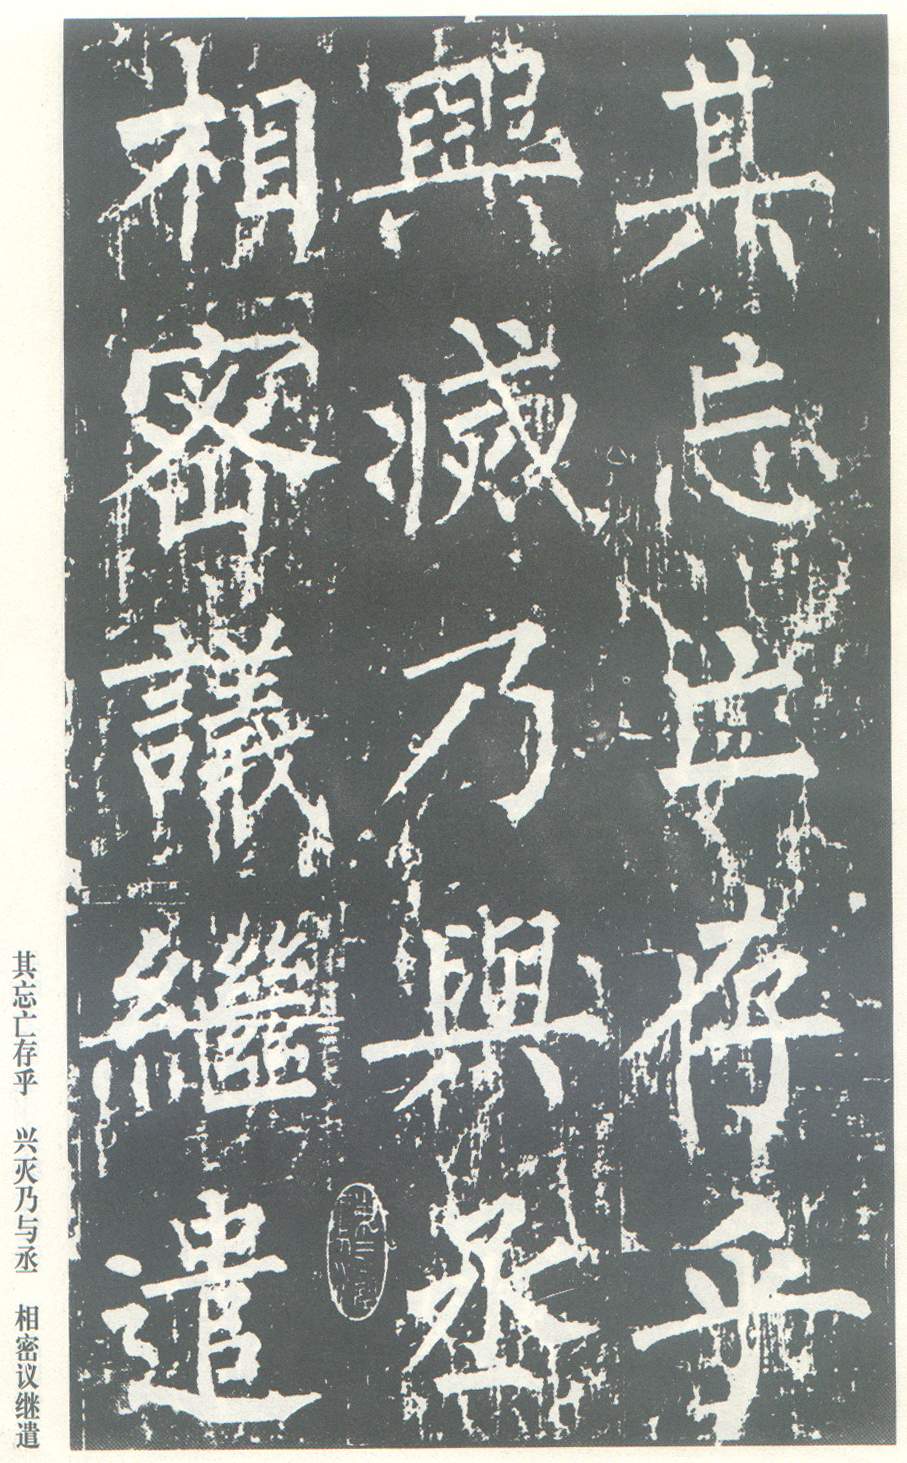 其忘亡存乎
興滅乃與丞
相密議繼遣
其忘亡存乎 兴灭乃与丞 相密议继遣